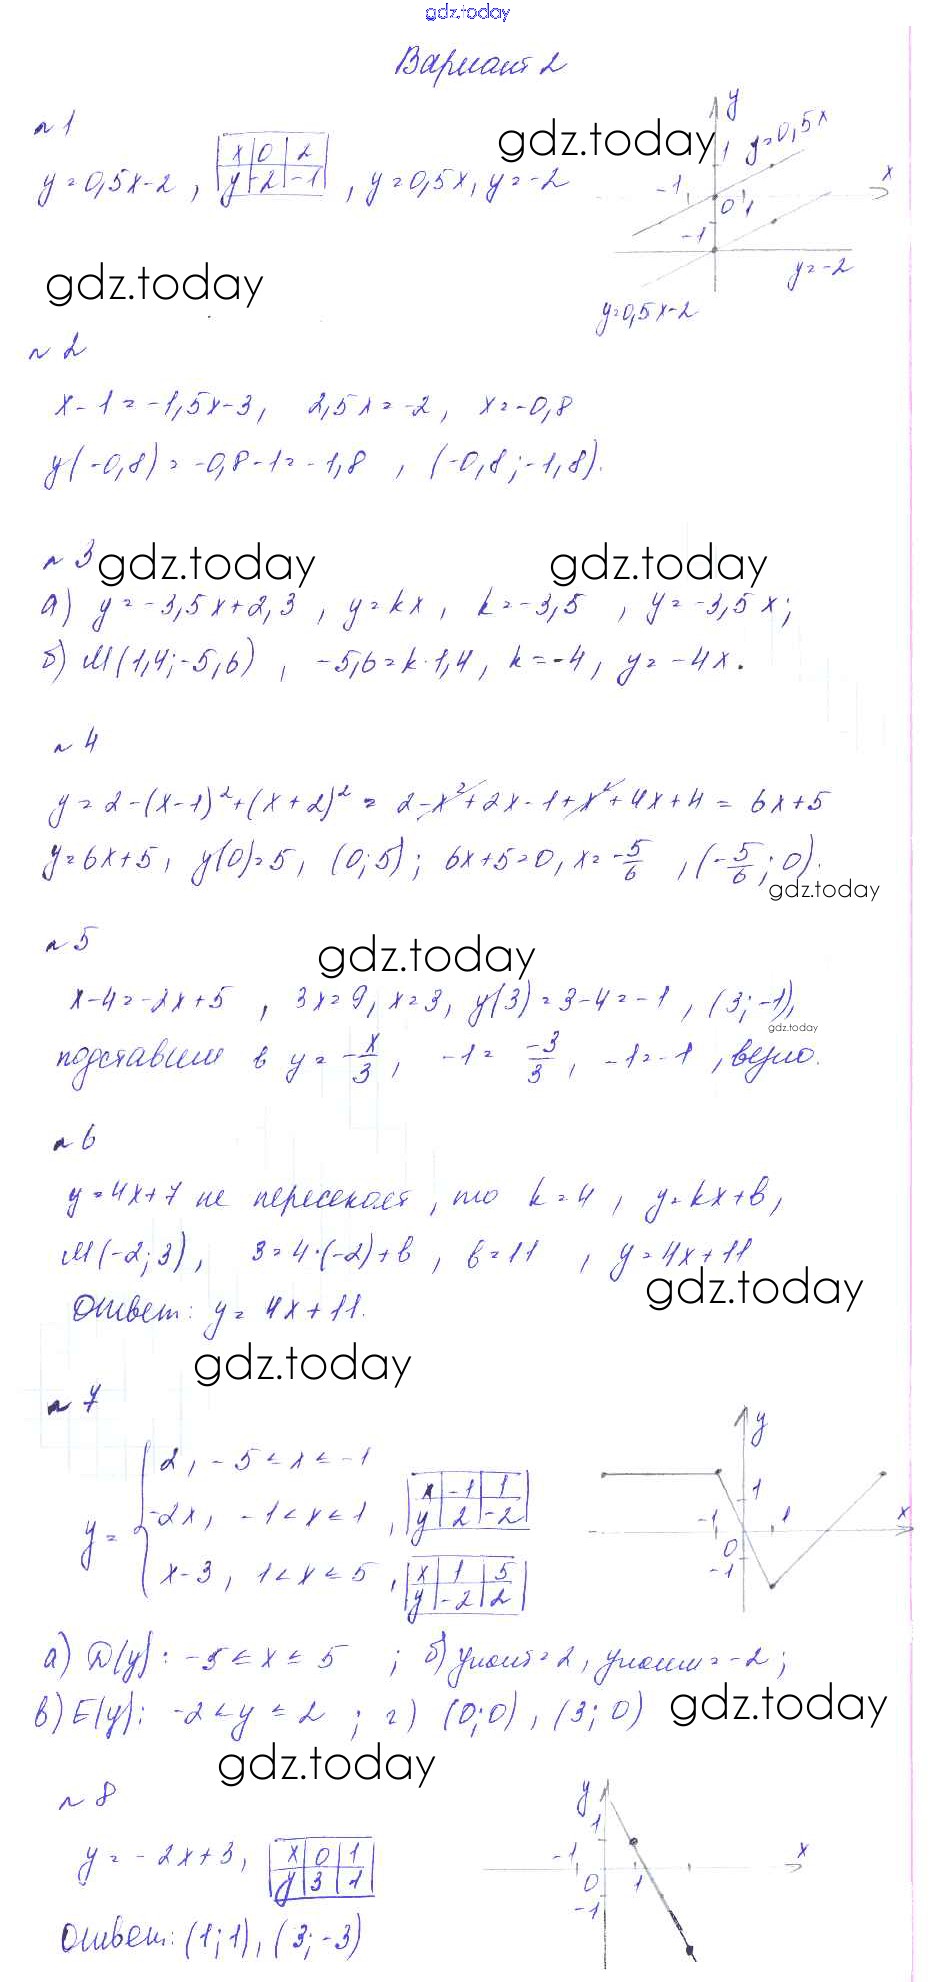 gdz.today
Вариант 2
n 1
y = 0,5x - 2 , x 0 2 , y = 0,5x, y = -2
y -2 -1
gdz.today
y
1
y = 0,5x
x
-1
0 1
-1
y = -2
y = 0,5x - 2
gdz.today
n 2
x - 1 = -1,5x - 3, 2,5x = -2, x = -0,8
y(-0,8) = -0,8 - 1 = -1,8 , (-0,8; -1,8).
n 3
gdz.today gdz.today
а) y = -3,5x + 2,3 , y = kx, k = -3,5 , y = -3,5x;
б) M(1,4; -5,6) , -5,6 = k·1,4, k = -4, y = -4x.
n 4
y = 2 - (x - 1)² + (x + 2)² = 2 - x² + 2x - 1 + x² + 4x + 4 = 6x + 5
y = 6x + 5, y(0) = 5, (0; 5); 6x + 5 = 0, x = -5/6 , (-5/6; 0).
gdz.today
n 5
gdz.today
x - 4 = -2x + 5 , 3x = 9, x = 3, y(3) = 3 - 4 = -1 , (3; -1),
gdz.today
подставим в y = -x/3, -1 = -3/3, -1 = -1 , верно.
n 6
y = 4x + 7 не пересекает, то k = 4 , y = kx + b,
M(-2; 3), 3 = 4·(-2) + b , b = 11 , y = 4x + 11
gdz.today
Ответ: y = 4x + 11.
gdz.today
n 7
y = { 2, -5 ≤ x ≤ -1
-2x, -1 < x ≤ 1 , x -1 1
y 2 -2
x - 3, 1 < x ≤ 5 , x 1 5
y -2 2
y
1
-1 1 x
0
-1
а) D(y): -5 ≤ x ≤ 5 ; б) yнаиб = 2, yнаим = -2;
в) E(y): -2 ≤ y ≤ 2 ; г) (0; 0), (3; 0)
gdz.today
gdz.today
n 8
y = -2x + 3, x 0 1
y 3 1
y
1
-1 x
0 1
-1
Ответ: (1; 1), (3; -3)